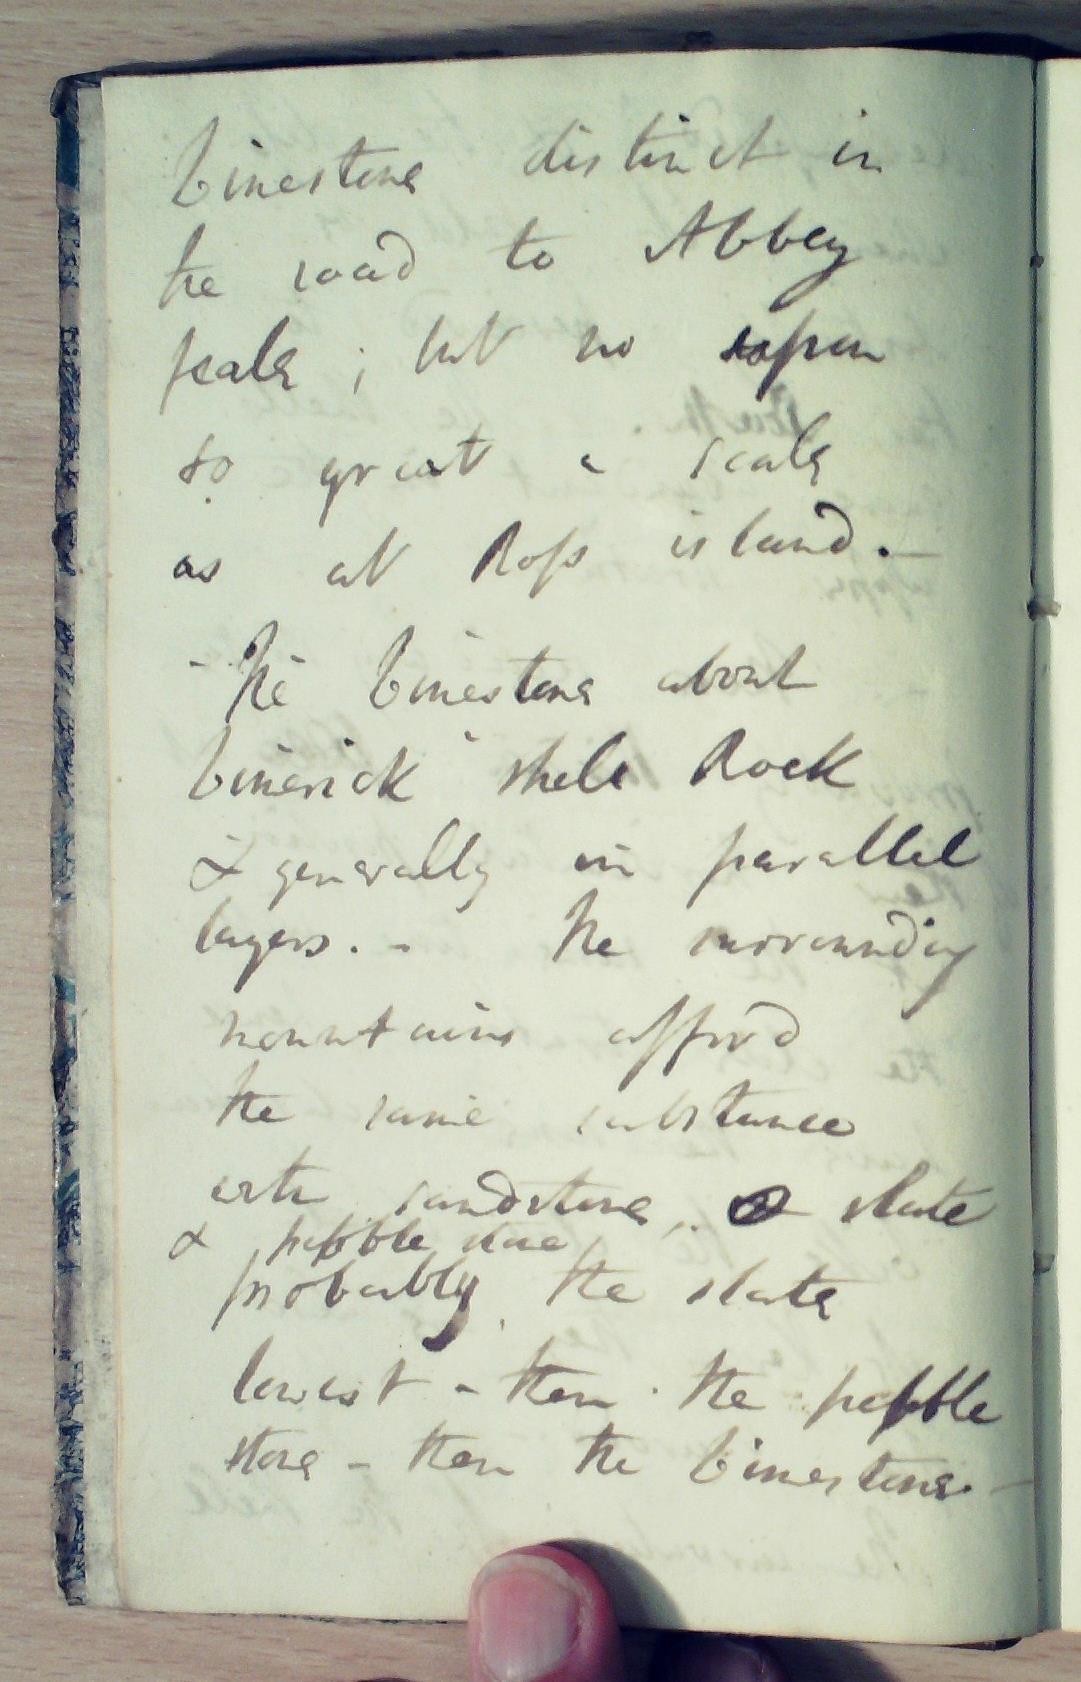 Limestone distinct in
the road to Abbey
feale; but no upon
so great a scale
as at Ross island. —
- The Limestone about
Limerick shell Rock
& generally in parallel
layers. - The surrounding
mountains afford
the same substance
with sandstone, slate
& pebble stone
probably the slate
lowest - then the pebble
stone - then the Limestone. —